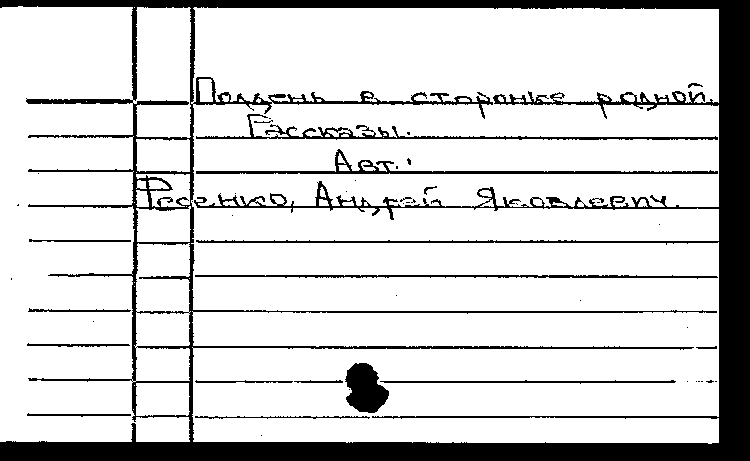 Полдень в сторонке родной.
Рассказы.
Авт.:
Фесенко, Андрей Яковлевич.